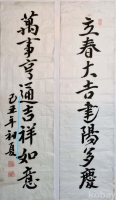 立春大吉建陽多慶
萬事亨通吉祥如意
己丑年初夏